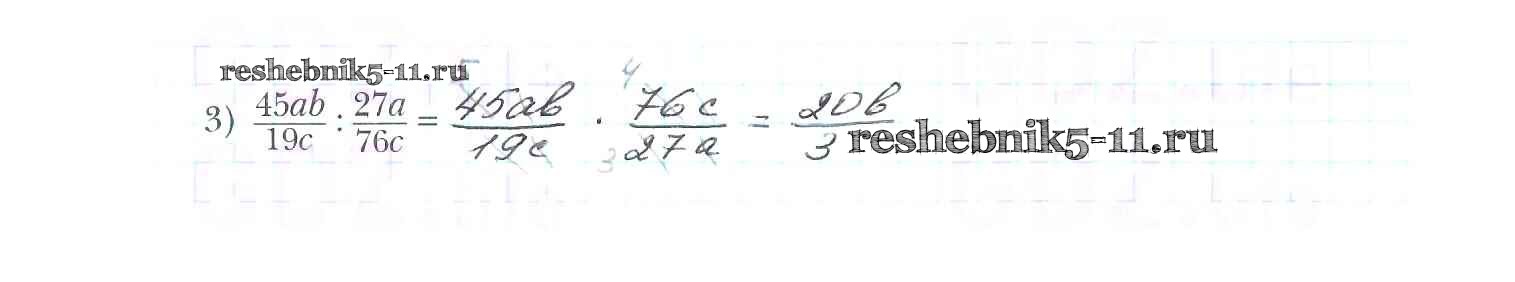 reshebnik5-11.ru
3) 45ab/19c : 27a/76c = 45ab/19c · 76c/27a = 20b/3
5 4 3
reshebnik5-11.ru